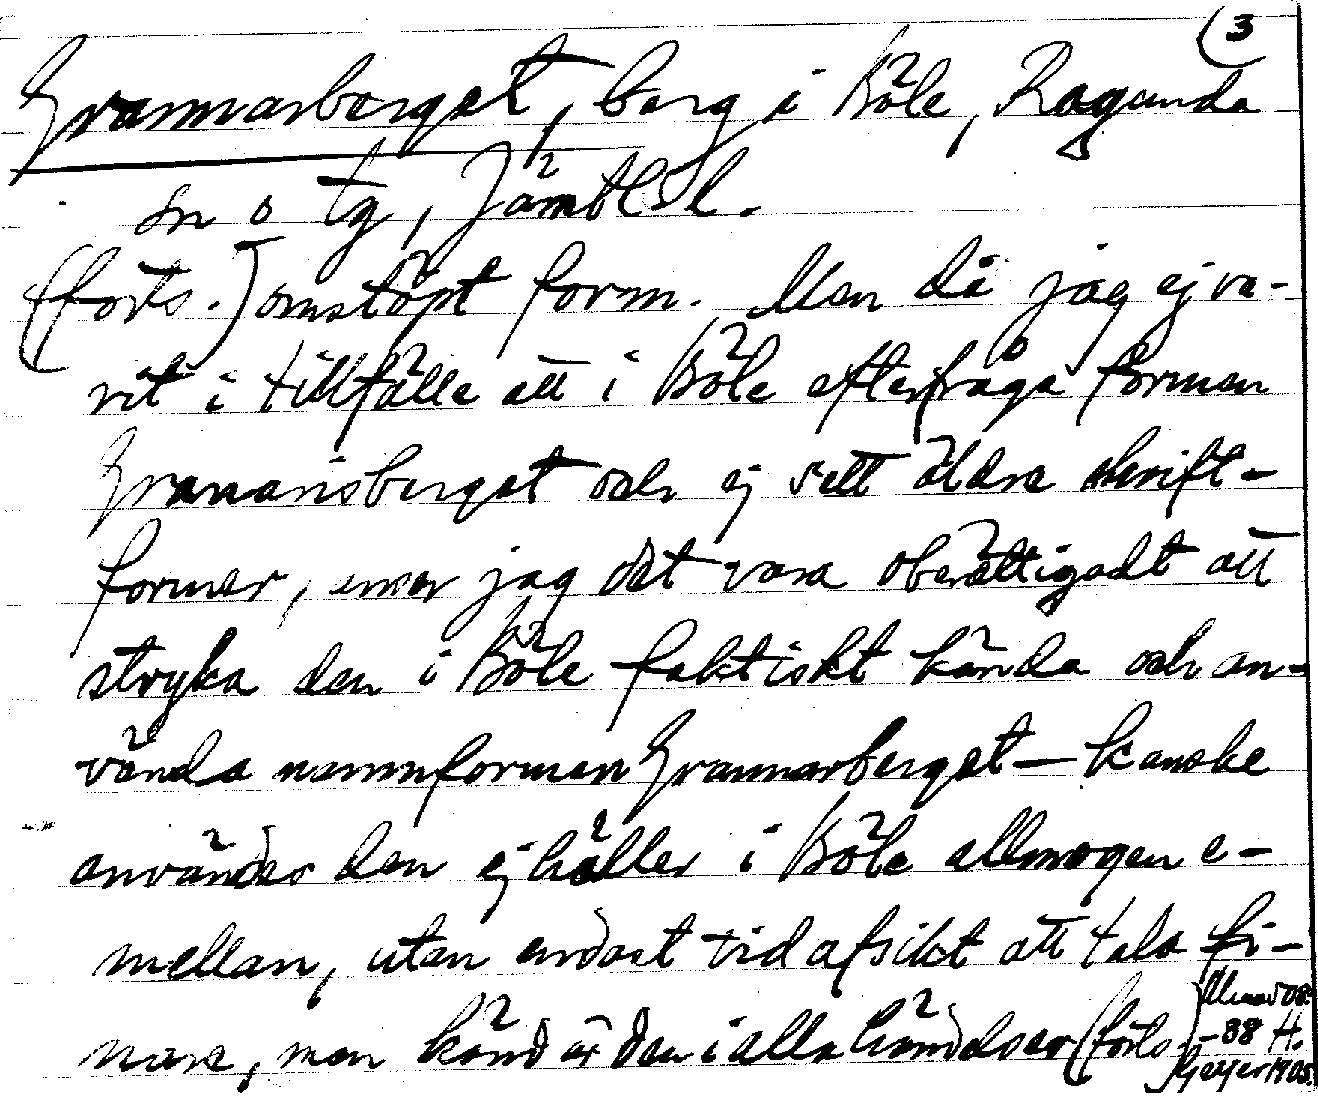 (3
Grannarberget, berg i Böle, Ragunda
sn o tg, Jämtl. l.
(forts.) omstöpt form. Men då jag ej va-
rit i tillfälle att i Böle efterfråga formen
Grananisberget och ej sett äldre skrift-
former, anser jag det vara oberättigadt att
stryka den i Böle faktiskt kända och an-
vända namnformen Grannarberget — kanske
användes den ej häller i Böle allmogen e-
mellan, utan endast vid afsikt att tala fi-
nare, men känd är den i alla händelser (forts.)
-88 H.
Geijer 1905.